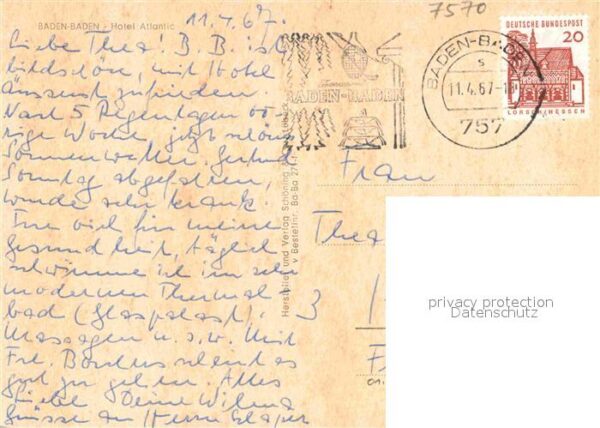 BADEN-BADEN - Hotel Atlantic
11.4.67.
Liebe Thea! B. B. ist
bildschön, mit Hotel
äusserst zufrieden.
Nach 5 Regentagen vo-
rige Woche jetzt schönes
Sonnenwetter. Gertrud
Sonntag abgefahren,
wurde sehr krank.
Tue viel für meine
Gesundheit, täglich
schwimme ich im sehr
modernen Thermal-
bad (Glaspalast).
Massagen u. s. w. Mit
Frl. scheint es
gut zu gehen. Alles
Liebe Deine Wilma
Grüsse an Herrn
Hersteller und Verlag Schöning
Bestellnr. Ba-Ba 271
7570
BADEN-BADEN
BADEN-BADEN
s
11.4.67-1
757
DEUTSCHE BUNDESPOST
20
LORSCH/HESSEN
Frau
Thea
3
privacy protection
Datenschutz